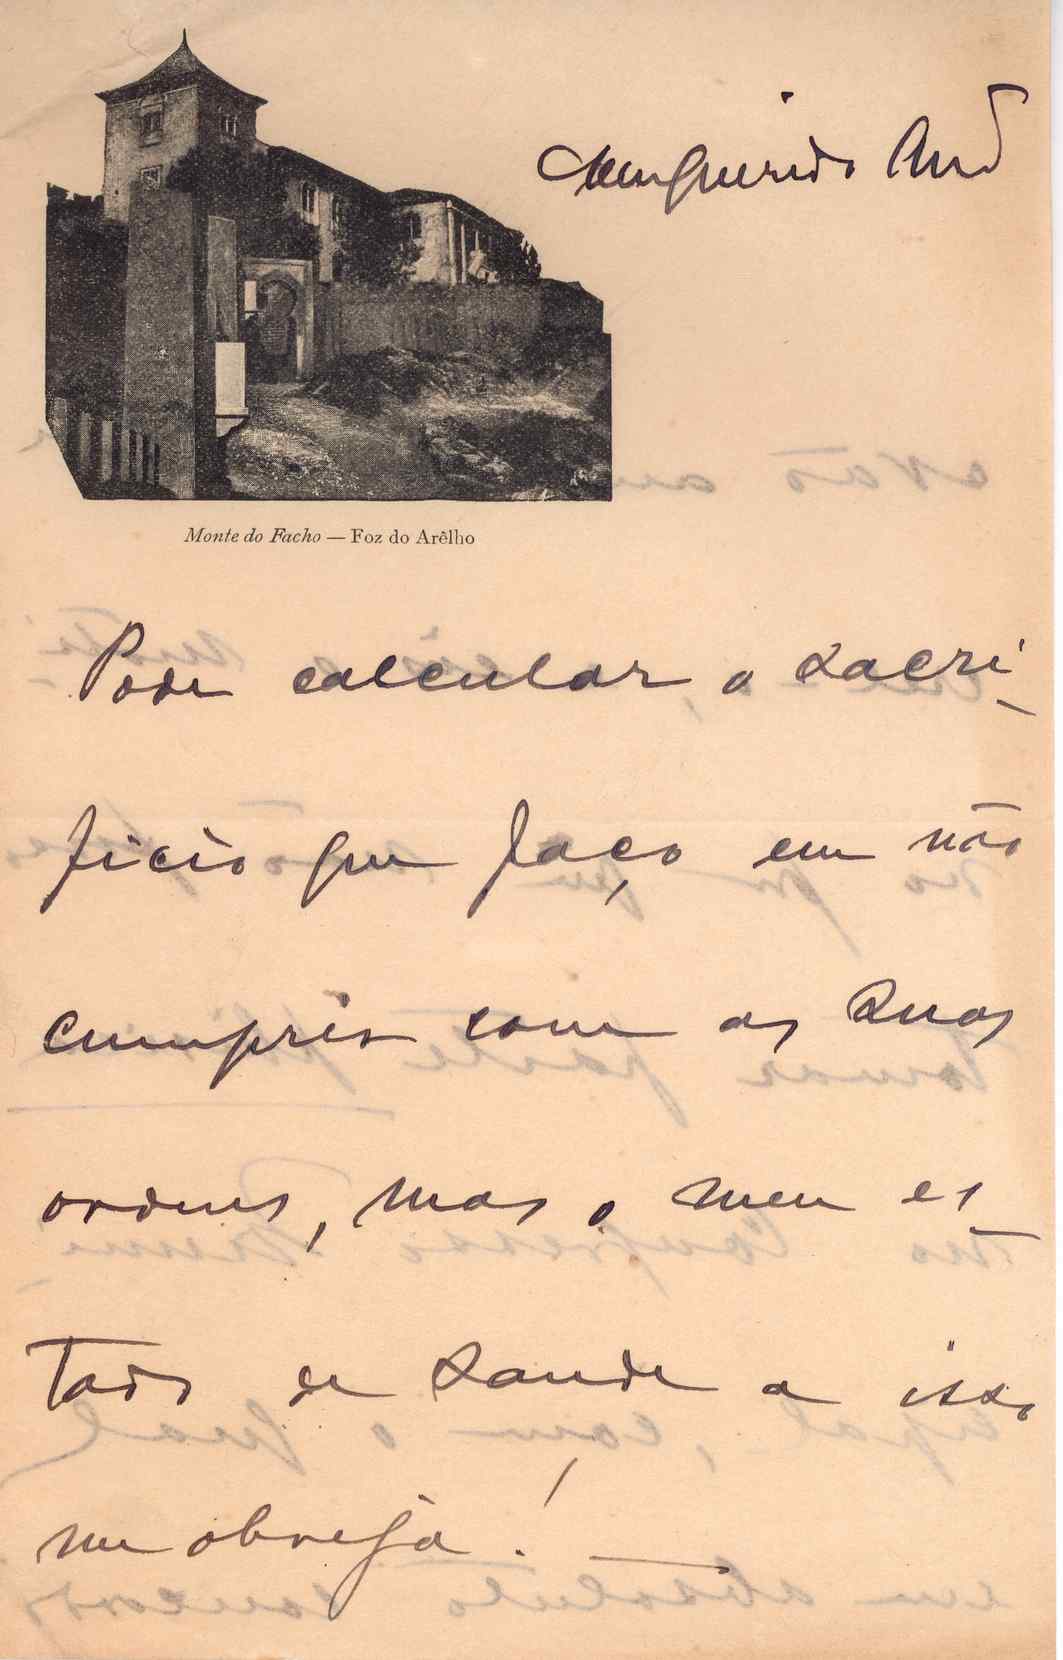 Meu querido Am̃o
Monte do Facho — Foz do Arêlho
Pode calcular, o sacri-
ficio que faço em não
cumprir com as suas
ordens, mas o meu es-
tado de saude a isso
me obriga! —